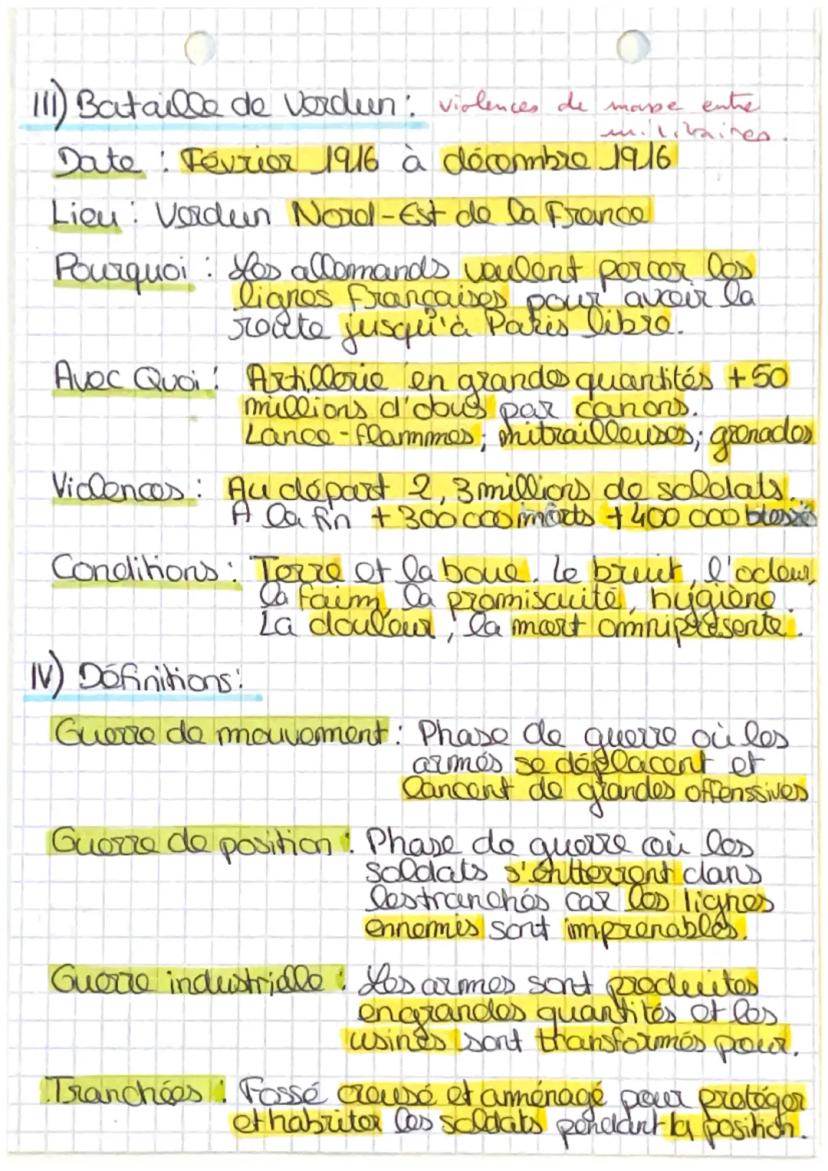 III) Bataille de Verdun : violences de masse entre
militaires.
Date : Février 1916 à décembre 1916
Lieu : Verdun Nord-Est de la France
Pourquoi : Les allemands veulent percer les
lignes françaises pour avoir la
route jusqu'à Paris libre.
Avec Quoi : Artillerie en grandes quantités +50
millions d'obus par canons.
Lance-flammes ; mitrailleuses ; grenades
Violences : Au départ 2,3 millions de soldats.
A la fin +300 000 morts +400 000 blessés
Conditions : Terre et la boue. Le bruit, l'odeur,
la faim, la promiscuité, hygiène.
La douleur, la mort omniprésente.
IV) Définitions :
Guerre de mouvement : Phase de guerre où les
armés se déplacent et
lancent de grandes offenssives
Guerre de position : Phase de guerre où les
soldats s'entterrent dans
lestranchés car les lignes
ennemis sont imprenables.
Guerre industrielle : Les armes sont produites
engrandes quantités et les
usines sont transformés pour.
Tranchées : Fossé creusé et aménagé pour protéger
ethabriter les soldats pendant la position.